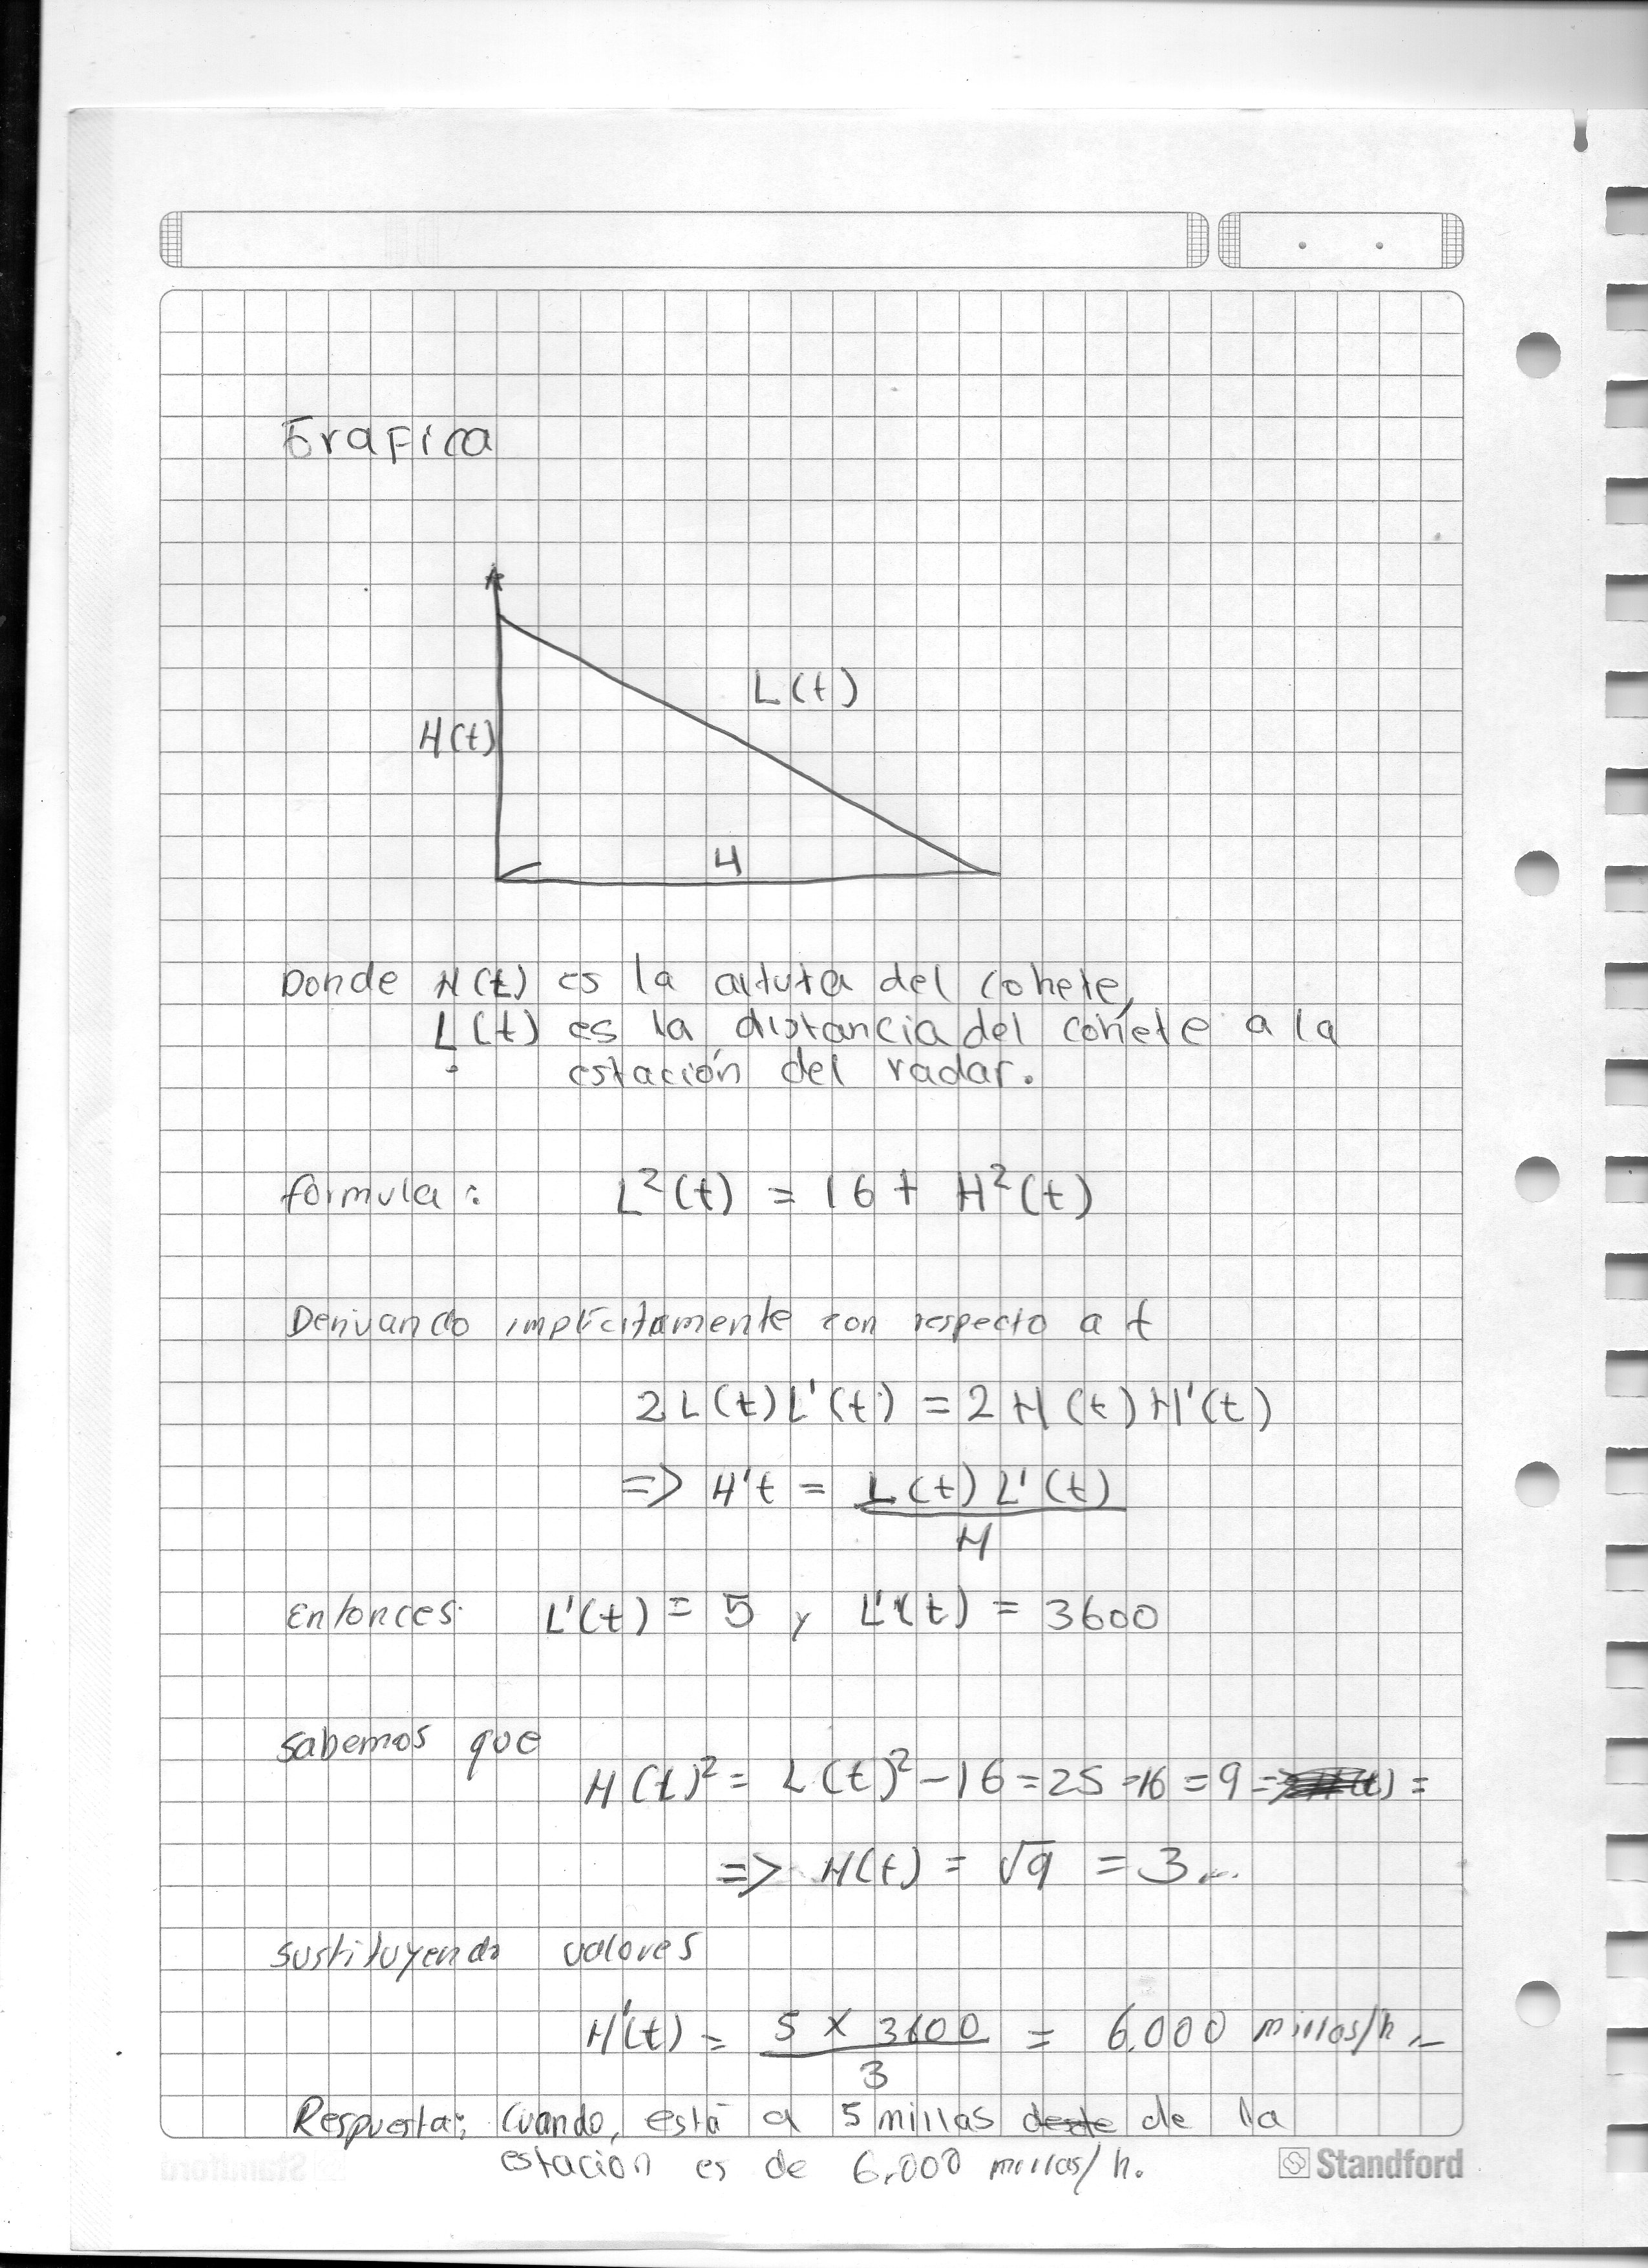 Grafica
L(t)
H(t)
4
Donde H(t) es la altura del cohete,
L(t) es la distancia del cohete a la
estación del radar.
formula: L²(t) = 16 + H²(t)
Derivando implícitamente con respecto a t
2L(t)L'(t) = 2H(t)H'(t)
=> H't = L(t) L'(t)
H
Entonces L'(t) = 5 y L'(t) = 3600
sabemos que
H(t)² = L(t)² - 16 = 25 - 16 = 9 =
=> H(t) = √9 = 3
sustituyendo valores
H'(t) = 5 x 3600 = 6.000 millas/h
3
Respuesta: Cuando, está a 5 millas desde de la
estación es de 6.000 millas/h.
Standford